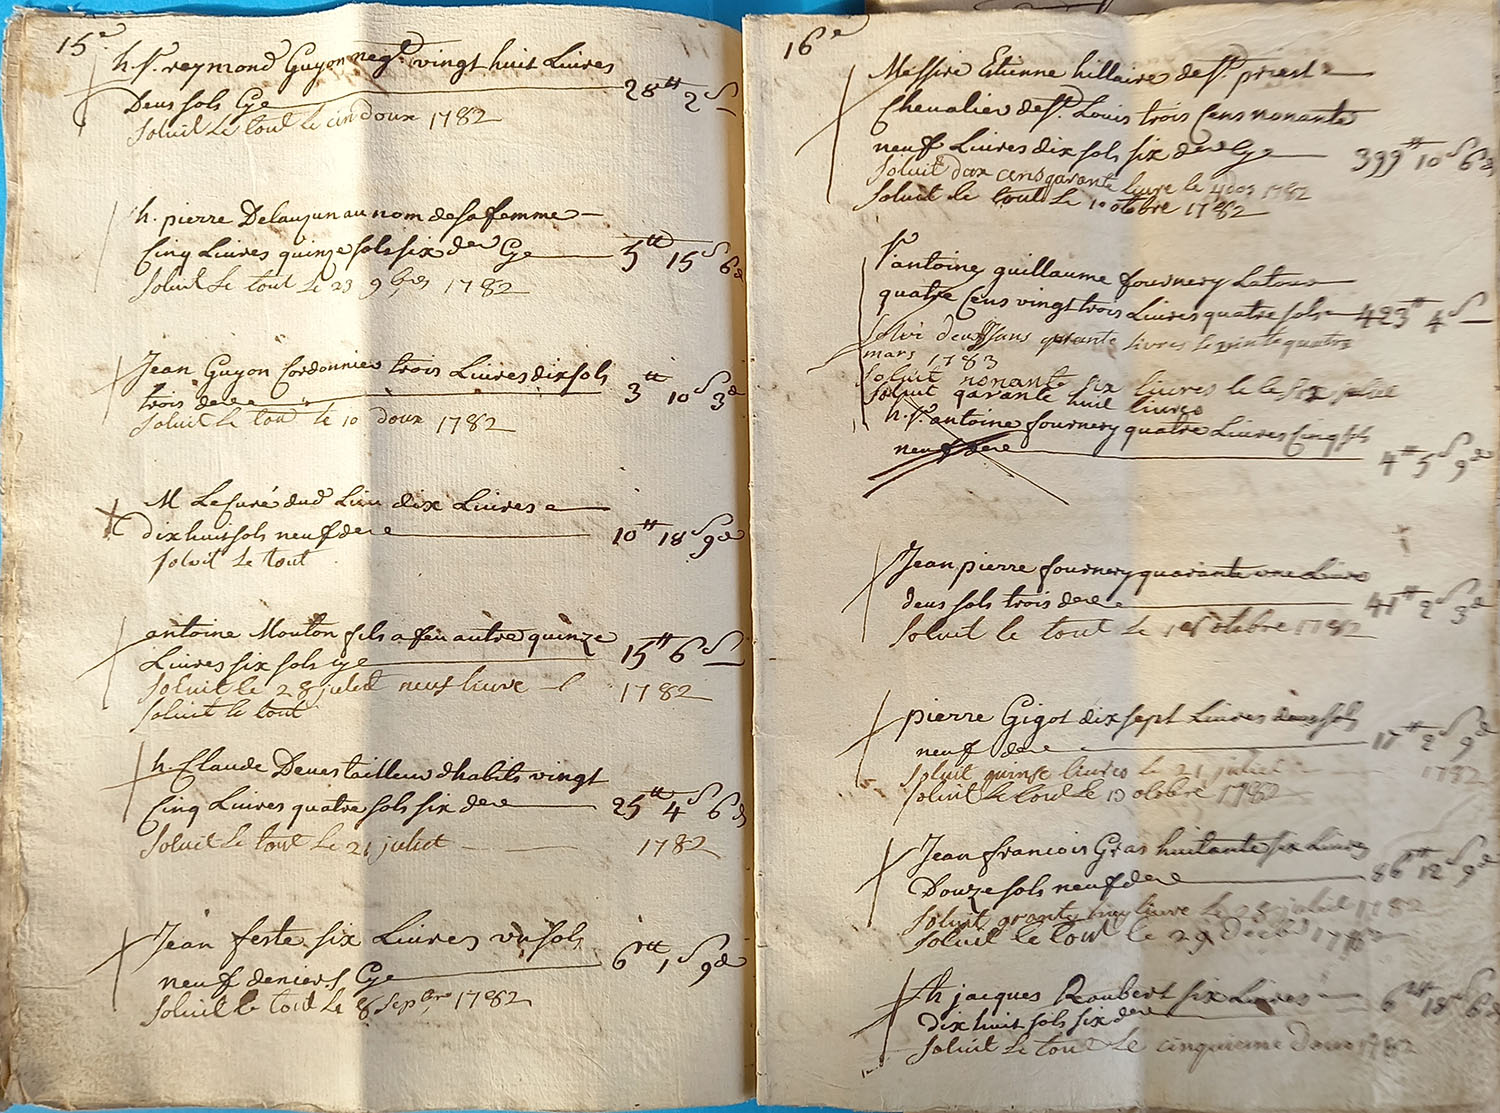 15e
h. Sr. reymond Guyon neg.t vingt huit Livres
Deus sols Cy 28 tt 2 s
Soluit Le tout le cin doux 1782
h. pierre Delaujun au nom de sa femme
Cinq Livres quinze sols six der Cy 5 tt 15 s 6 d
Soluit Le tout Le 23 9bre 1782
Jean Guyon Cordonnier trois Livres dix sols
trois der 3 tt 10 s 3 d
Soluit Le tout le 10 doux 1782
M Le Curé dud Lieu dix Livres
dix huit sols neuf der 10 tt 18 s 9 d
soluit Le tout
antoine Mouton fils a feu autre quinze
Livres six sols cy 15 tt 6 s
Soluit le 28 juliet neuf livre 1782
Soluit le tout
h. Claude Deves tailleur dhabits vingt
Cinq Livres quatre sols six der 25 tt 4 s 6 d
Soluit Le tout Le 21 juliet 1782
Jean feste six Livres un sols
neuf deniers Cy 6 tt 1 s 9 d
Soluit Le tout Le 8 Sepbre 1782
16e
Messire Etienne hillaire de St. priest
Chevalier de St. Louis trois Cens nonante
neuf Livres dix sols six der Cy 399 tt 10 s 6 d
Soluit dox cens qarante livre le 4 dos 1782
Soluit le tout Le 10 otobre 1782
Sr antoine guillaume fournery Latour
quatre Cens vingt trois Livres quatre sols 423 tt 4 s
Solvi deux sans qrante livres le vinte quatre
mars 1783
Soluit nonante six livres le le six juliet
Soluit qarante huit livres
h. Sr. antoine fournery quatre Livres Cinq sols
neuf der 4 tt 5 s 9 d
Jean pierre fournery quarante une Livre
deus sols trois der 41 tt 2 s 3 d
Soluit le tout Le 1er otobre 1782
pierre Gigot dix sept Livres deus sols
neuf der 17 tt 2 s 9 d
Soluit quinse livres le 21 juliet 1782
Soluit Le tout Le 13 otobre 1782
Jean francois Gras huitante six Livres
Douze sols neuf der 86 tt 12 s 9 d
Soluit qrante livre Le 28 juliet 1782
Soluit le tout le 29 Decbre
h jacques Roubert six Livres
dix huit sols six der 6 tt 18 s 6 d
Soluit Le tout Le cinquieme doux 1782